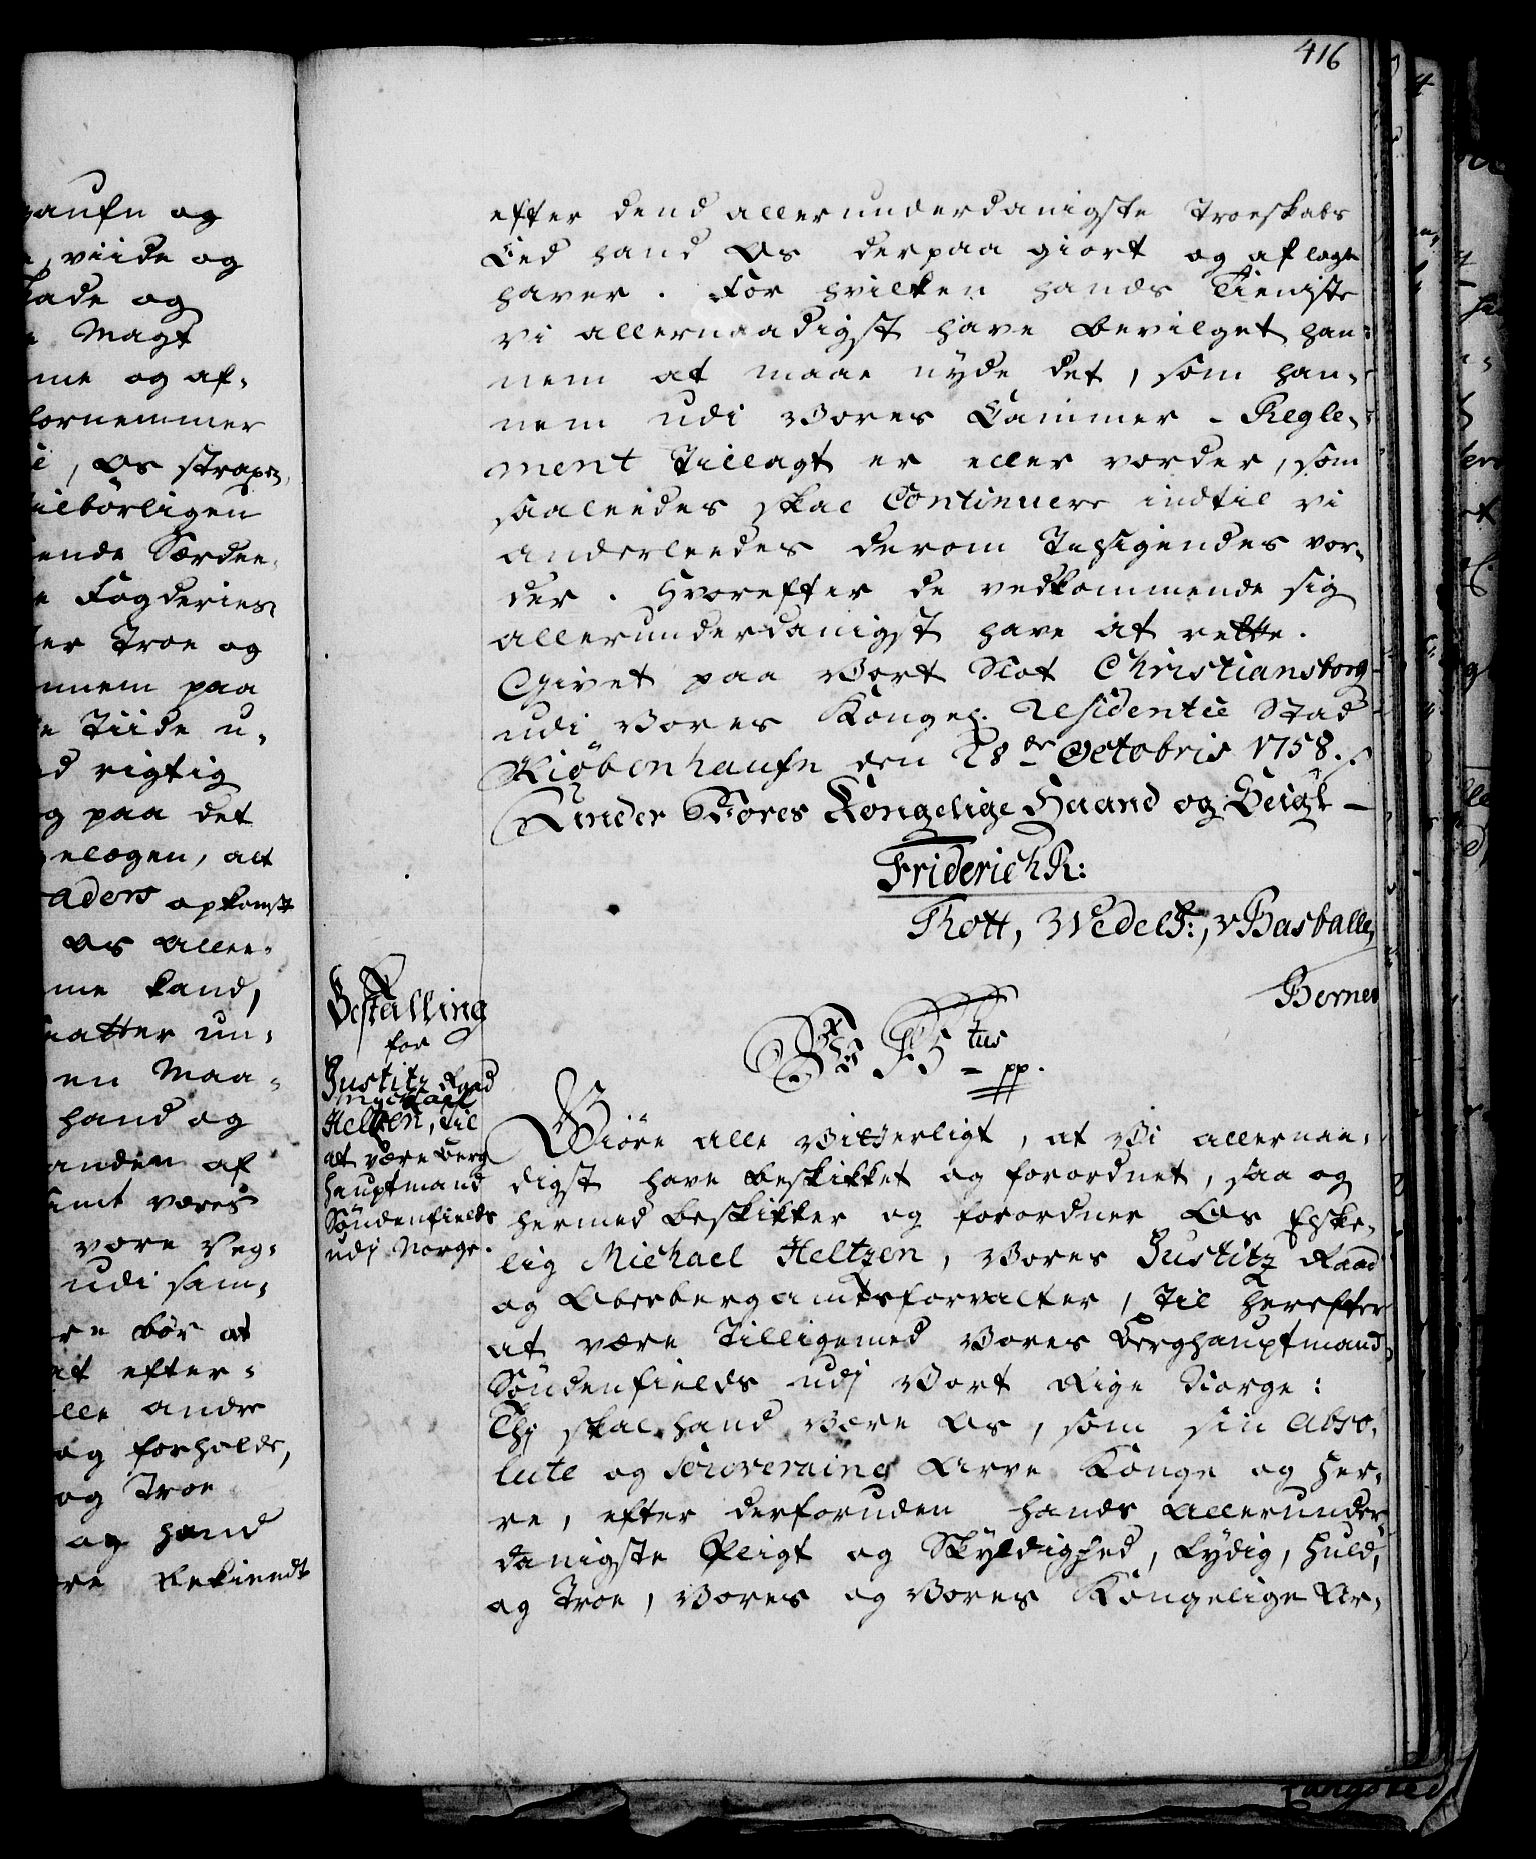 416
efter dend allerunderdanigste Troeskabs
Eed hand Os derpaa giort og aflagt
haver. For hvilken hands Tieniste
vi allernaadigst have bevilget han-
nem at maae nyde det, som han-
nem udi Vores Cammer-Regle-
ment Tillagt er eller vorder, som
saaleedes skal Continuere indtil vi
anderleedes derom Tilsigendes vor-
der. Hvorefter de vedkommende sig
allerunderdanigst have at rette.
Givet paa Vort Slot Christiansborg
udi Vores Kongel. Residentie Stad
Kiøbenhaufn den 28de Octobris 1758.
Under Vores Kongelige Haand og Seigl
Friderich R:
Thott, Wedel F:, v Basballe,
Berner
Bestalling
for
Justitz Raad
Michael
Heltzen, til
at være Berg
hauptmand
Søndenfields
udj Norge.
Vii F 5tus pp.
Giøre alle Vitterligt, at Vi allernaa-
digst have beskikket og forordnet, saa og
hermed beskikker og forordner Os Elske-
lig Michael Heltzen, Vores Justitz Raad
og Oberbergamtsforvalter, til herefter
at være Tilligemed Vores Berghauptmand
Søndenfields udj Vort Rige Norge:
Thj skal hand være Os, som sin Abso-
lute og Souveraine Arve Konge og Her-
re, efter derforuden hands Allerunder-
danigste Pligt og Skyldighed, lydig, huld,
og Troe, Vores og Vores Kongelige Ar-
haufn og
viide og
skade og
Magt
me og af-
fornemmer
, Os strax
tilbørligen
ende Særdee-
Fogderies
er Troe og
nnem paa
Tiide u-
d rigtig
g paa det
gelægen, alt
aders opkomst
Os aller-
me kand,
Skatter un-
en Maa-
hand og
anden af
amt være
være Veg-
udi sam-
re bør at
at efter-
lle andre
og forholde,
og Troe
og hand
re bekiendt